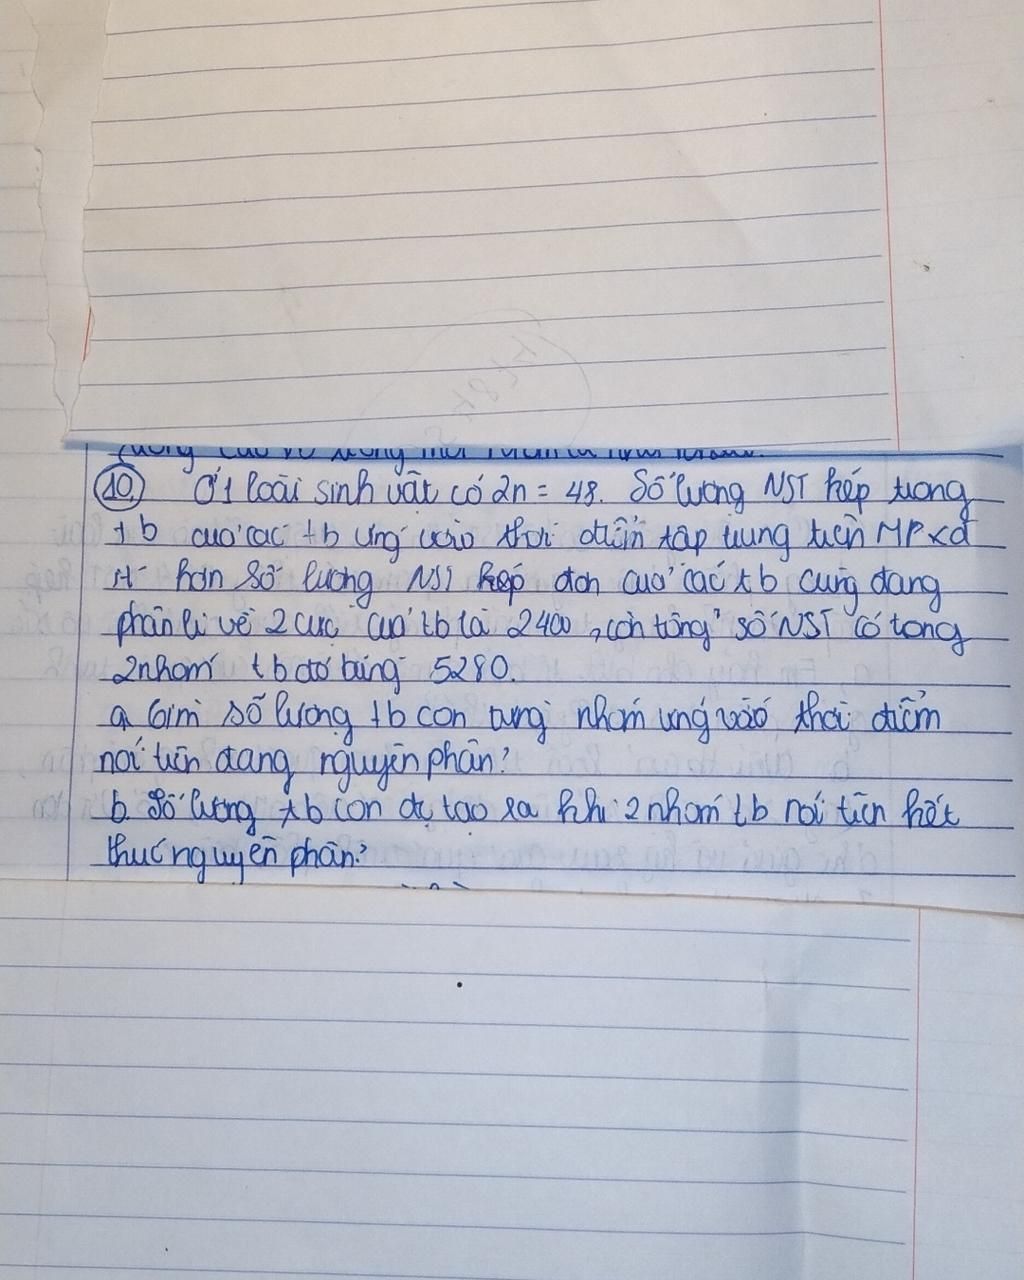 10. Ở 1 loài sinh vật có 2n = 48. Số lượng NST kép trong
tb của các tb ứng vào thời điểm tập trung trên MPXĐ
ít hơn số lượng NST kép đơn của các tb cùng đang
phân li về 2 cực của tb là 2400, còn tổng số NST có trong
2 nhóm tb đó bằng 5280.
a. Tìm số lượng tb con từng nhóm ứng vào thời điểm
nói trên đang nguyên phân?
b. Số lượng tb con đc tạo ra khi 2 nhóm tb nói trên kết
thúc nguyên phân?